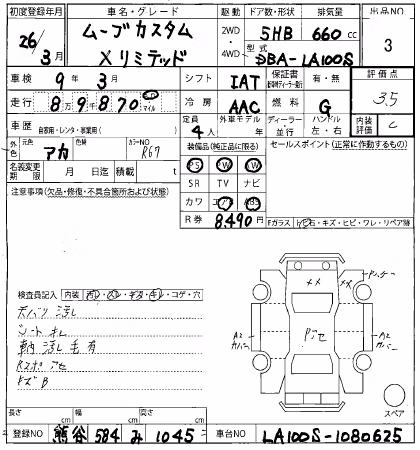 初度登録年月 車名・グレード 駆動 ドア数・形状 排気量 出品NO
26/3月 ムーブカスタム Xリミテッド 2WD・4WD 5HB 660cc 3
型式 DBA-LA100S
車検 9年3月 シフト IAT 保証書 有・無 評価点
走行 89870 マイル 冷房 AAC 燃料 G 3.5
車歴 自家用・レンタ・事業用( ) 定員 4人 外車モデル ディーラー・並行 ハンドル 左・右 内装評価 C
外色 元色 アカ 色替 カラーNO R67 装備品(純正品に限る) セールスポイント(正常に作動するもの)
名義変更期限 月 日迄 積載 t PS PW AW
SR TV ナビ
注意事項(欠品・修復・不具合箇所および状態) カワ エアB ABS
R券 8,490円 Fガラス トビ石・キズ・ヒビ・ワレ・リペア跡
検査員記入 内装 汚レ・スレ・キズ・キレ・コゲ・穴
天バリ汚レ
シートキレ
車内汚レ毛有
キズB
A2 カバー A2 カバー
スペア
長さ cm 幅 cm 高さ cm
登録NO 熊谷 584 み 1045 車台NO LA100S-1080625